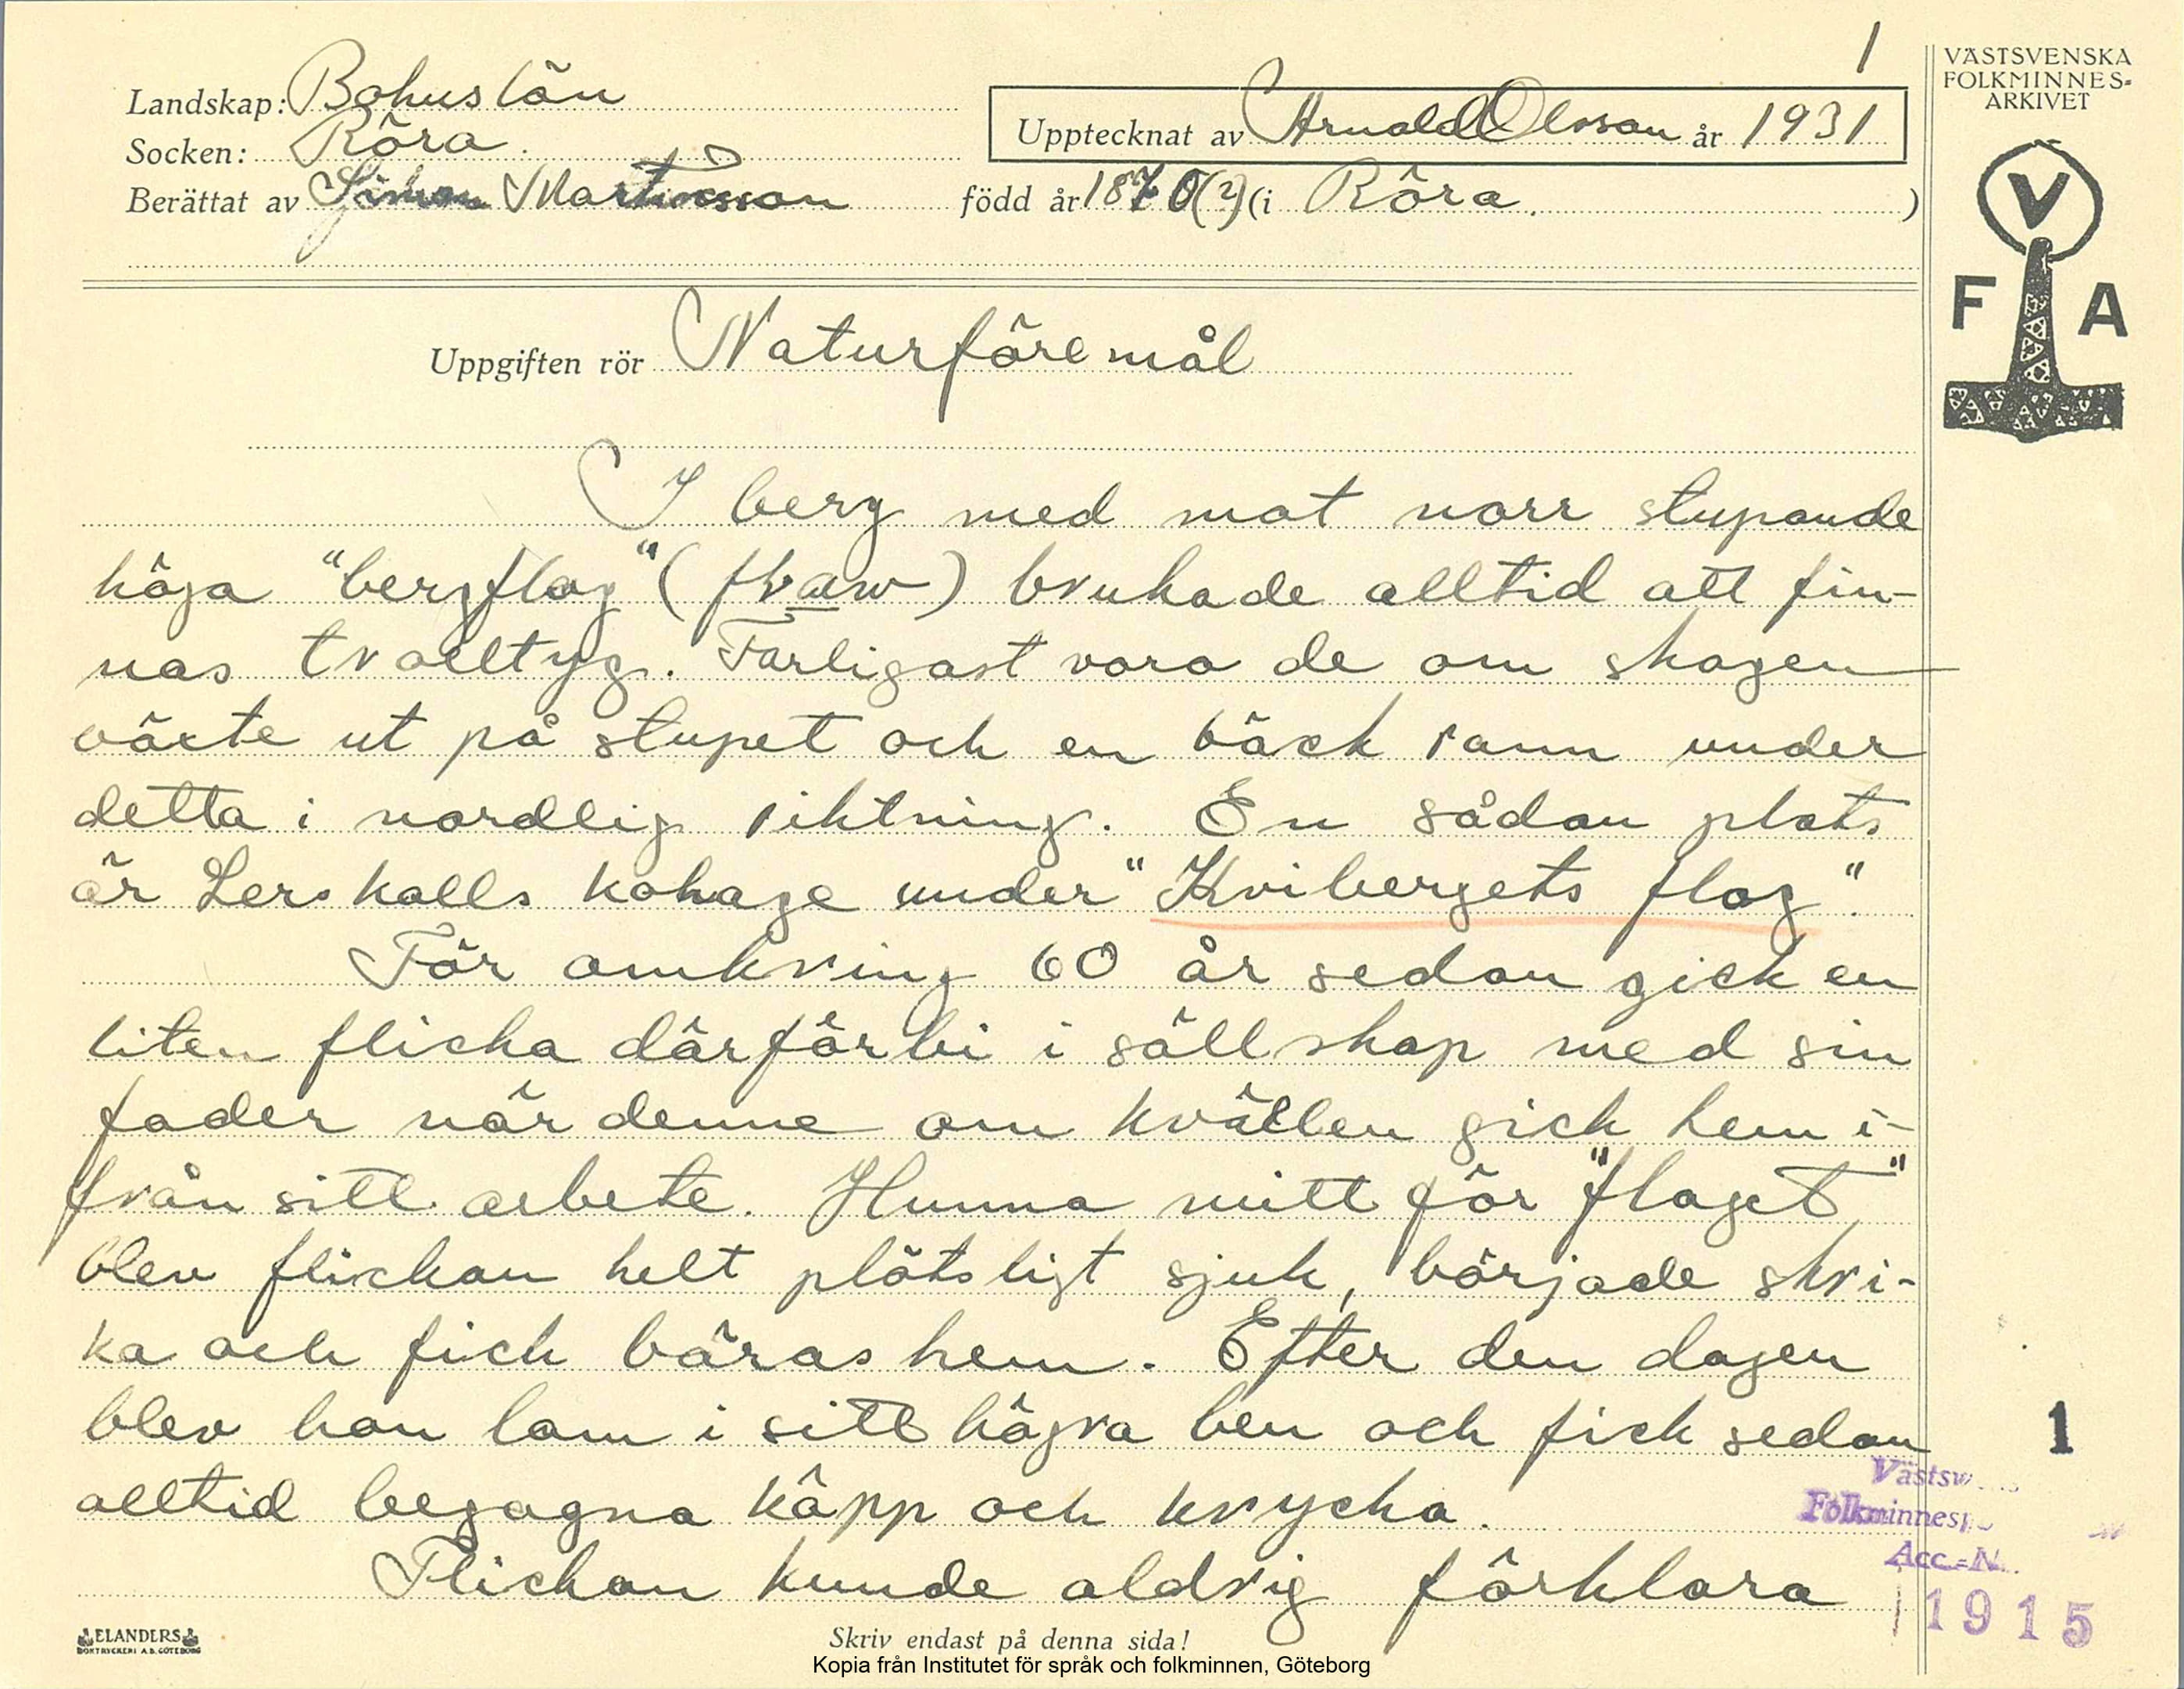 1
VÄSTSVENSKA
FOLKMINNES-
ARKIVET
Landskap: Bohuslän
Upptecknat av Arnold Olsson år 1931
Socken: Röra.
Berättat av Simon Martinsson född år 1870(?) (i Röra. )
V
F A
Uppgiften rör Naturföremål
I berg med mot norr stupande
höga "bergflog" ( ) brukade alltid att fin-
nas trolltyg. Farligast voro de om skogen
växte ut på stupet och en bäck rann under
detta i nordlig riktning. En sådan plats
är Lerskalls kohage under "Kvibergets flog".
För omkring 60 år sedan gick en
liten flicka därförbi i sällskap med sin
fader när denne om kvällen gick hem i-
från sitt arbete. Hunna mitt för "floget"
blev flickan helt plötsligt sjuk, började skri-
ka och fick bäras hem. Efter den dagen
blev hon lam i sitt högra ben och fick sedan
alltid begagna käpp och krycka.
Flickan kunde aldrig förklara
1
Västsv
Folkminnes
Acc.-N
1915
ELANDERS
BOKTRYCKERI A.B. GÖTEBORG
Skriv endast på denna sida!
Kopia från Institutet för språk och folkminnen, Göteborg